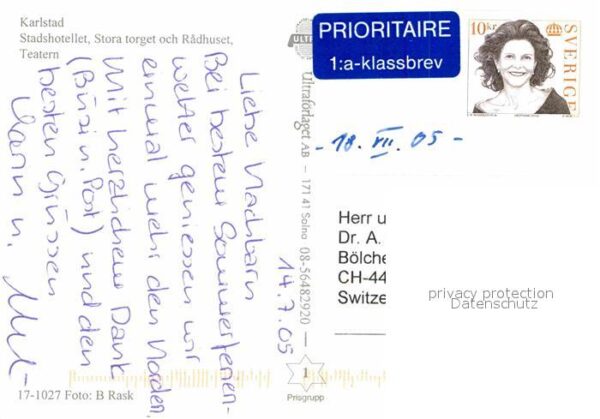 Karlstad
Stadshotellet, Stora torget och Rådhuset,
Teatern
PRIORITAIRE
1:a-klassbrev
10 kr
SVERIGE
- 18. VII. 05 -
ULTRA
Ultraförlaget AB – 171 41 Solna 08-56482920 –
14.7.05
Liebe Nachbarn
Bei bestem Sommerferien-
wetter geniessen wir
einmal mehr den Norden.
Mit herzlichem Dank
(Büsi u. Post) und den
besten Grüssen
u.
Herr u
Dr. A.
Bölche
CH-44
Switze
privacy protection
Datenschutz
1
Prisgrupp
17-1027 Foto: B Rask